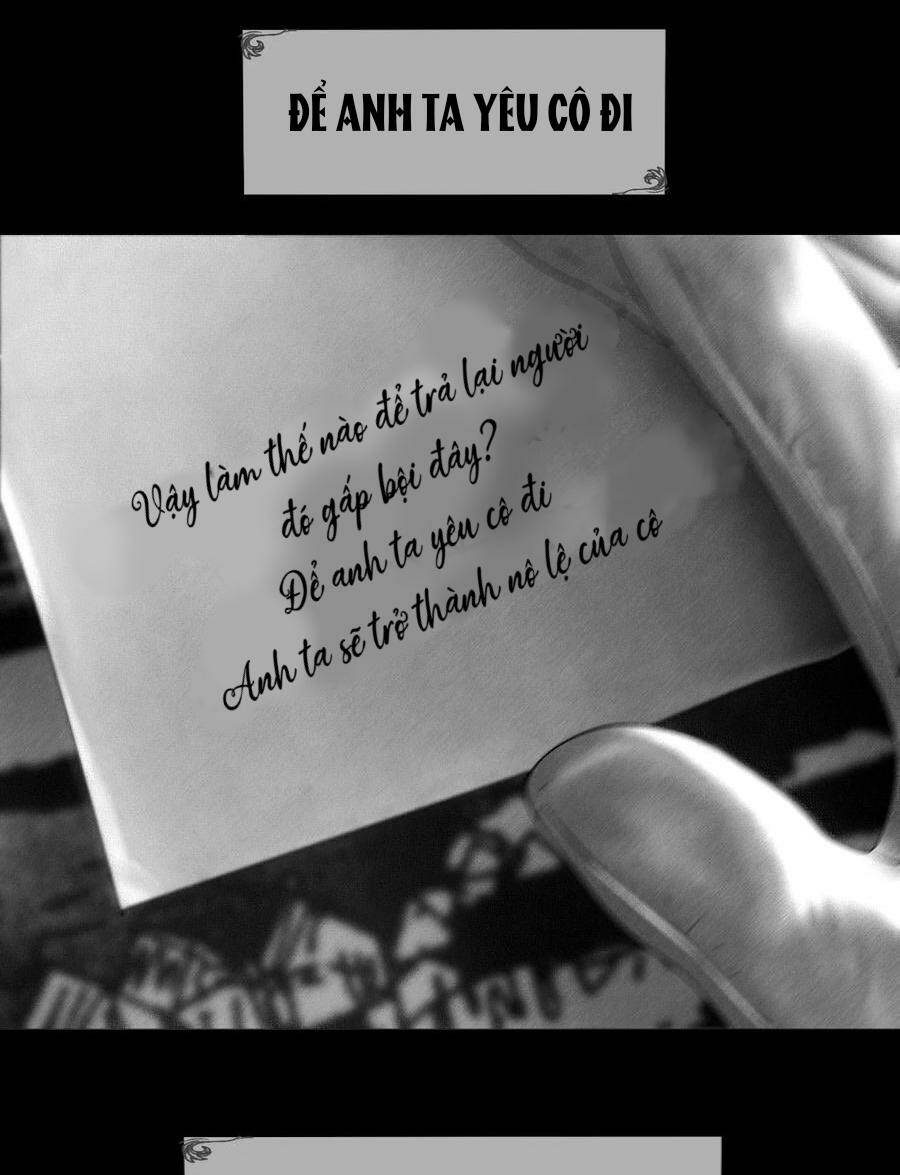 ĐỂ ANH TA YÊU CÔ ĐI
Vậy làm thế nào để trả lại người
đó gấp bội đây?
Để anh ta yêu cô đi
Anh ta sẽ trở thành nô lệ của cô